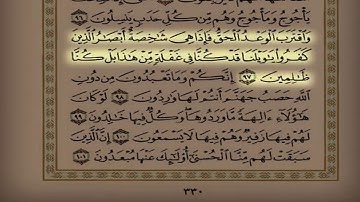 يَأْجُوجُ وَمَأْجُوجُ وَهُم مِّن كُلِّ حَدَبٍ يَنسِلُونَ ٩٦
وَاقْتَرَبَ الْوَعْدُ الْحَقُّ فَإِذَا هِيَ شَاخِصَةٌ أَبْصَارُ الَّذِينَ
كَفَرُوا يَاوَيْلَنَا قَدْ كُنَّا فِي غَفْلَةٍ مِّنْ هَذَا بَلْ كُنَّا
ظَالِمِينَ ٩٧ إِنَّكُمْ وَمَا تَعْبُدُونَ مِن دُونِ
اللَّهِ حَصَبُ جَهَنَّمَ أَنتُمْ لَهَا وَارِدُونَ ٩٨ لَوْ كَانَ
هَؤُلَاءِ آلِهَةً مَّا وَرَدُوهَا وَكُلٌّ فِيهَا خَالِدُونَ ٩٩
لَهُمْ فِيهَا زَفِيرٌ وَهُمْ فِيهَا لَا يَسْمَعُونَ ١٠٠ إِنَّ الَّذِينَ
سَبَقَتْ لَهُم مِّنَّا الْحُسْنَى أُولَئِكَ عَنْهَا مُبْعَدُونَ ١٠١
٣٣٠